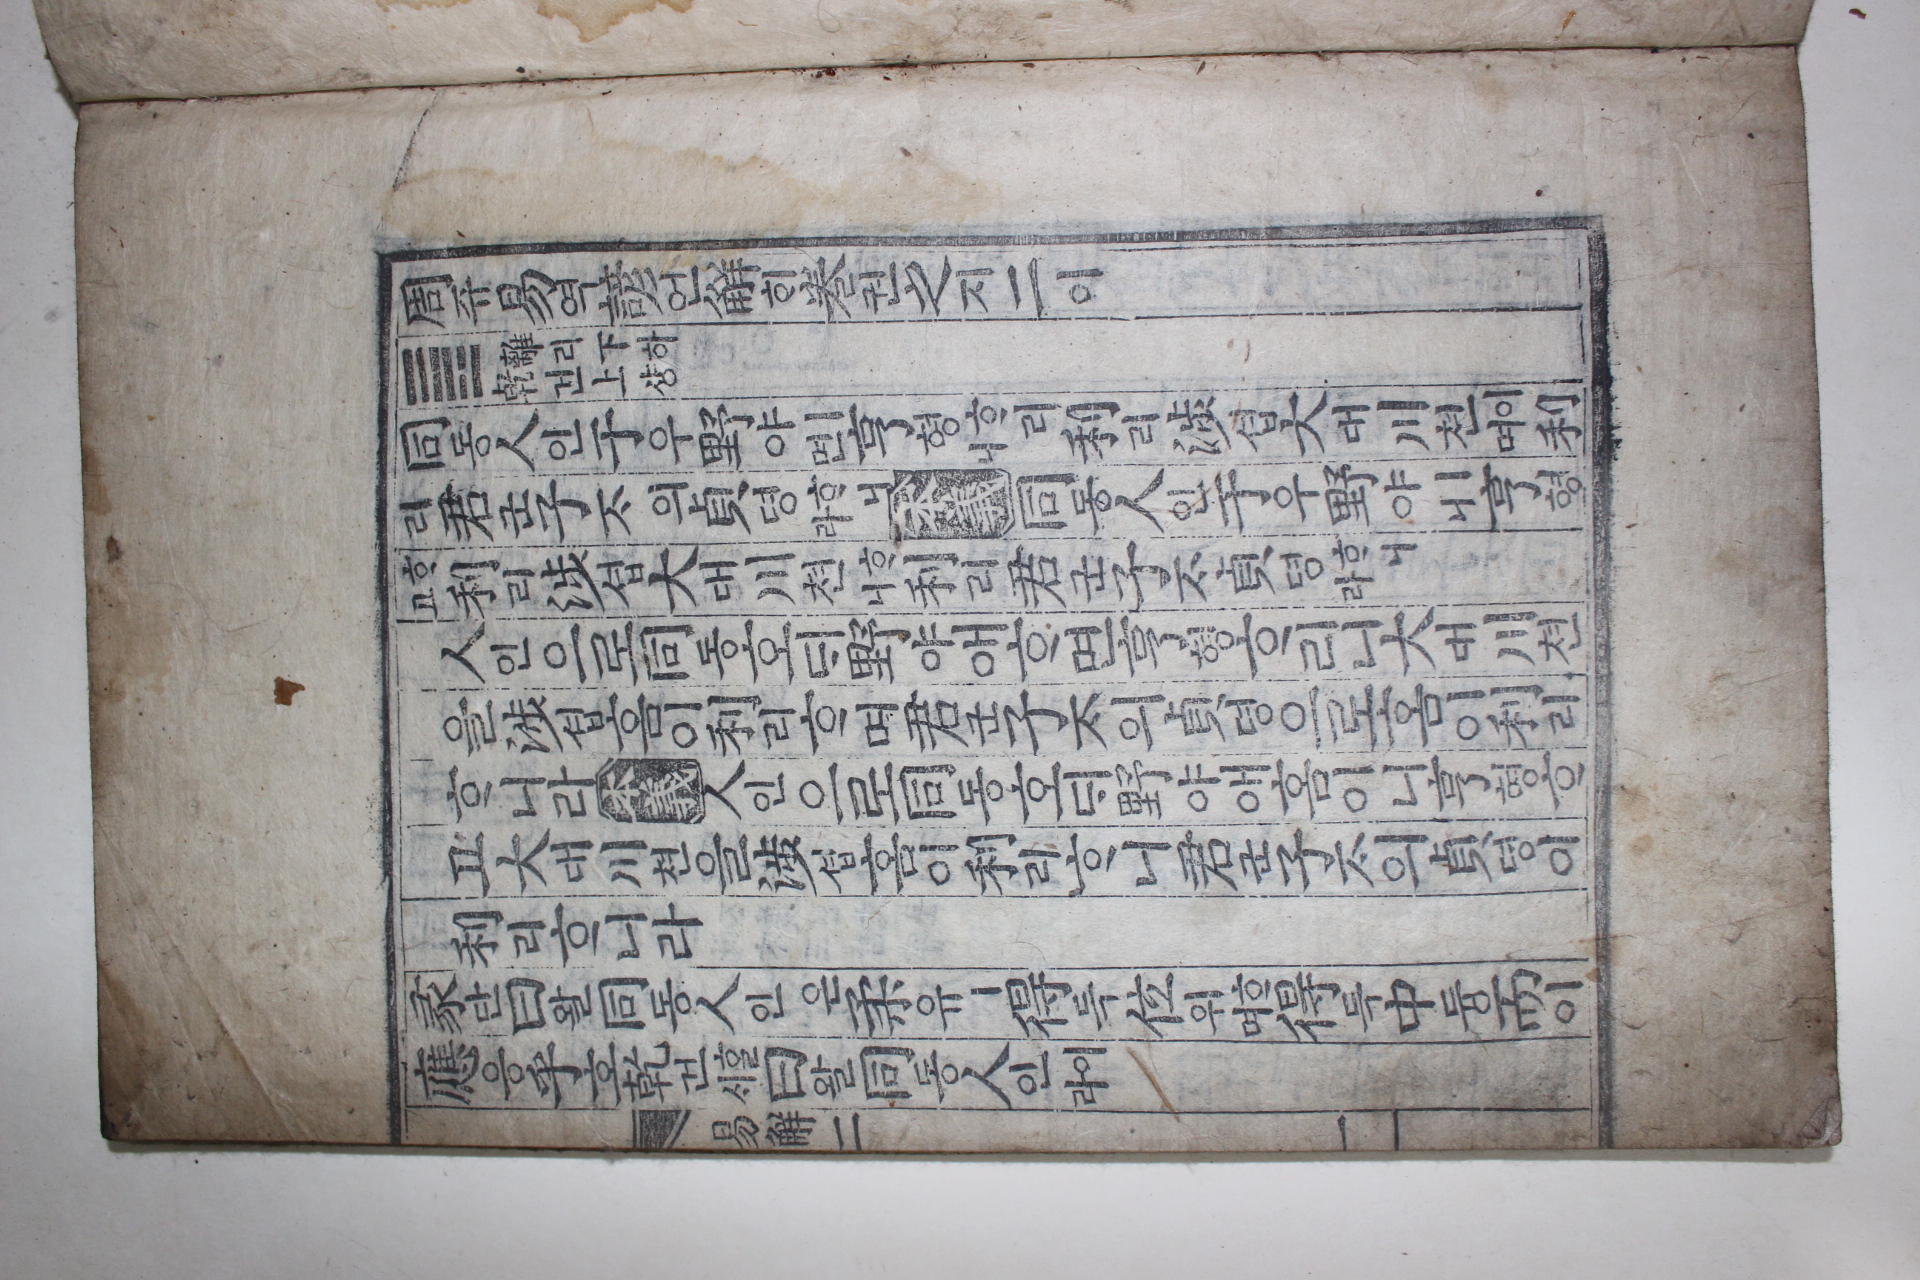 周쥬易역諺언解ᄒᆡ卷권之지二이
離리下하
乾건上샹
同동人인于우野야면亨형ᄒᆞ리니利리涉셥大대川쳔이며利
리君군子ᄌᆞ의貞뎡ᄒᆞ니라本義同동人인于우野야ㅣ니亨형
ᄒᆞ고利리涉셥大대川쳔ᄒᆞ니利리君군子ᄌᆞ貞뎡ᄒᆞ니라
人인으로同동호ᄃᆡ野야애ᄒᆞ면亨형ᄒᆞ리니大대川쳔
을涉셥홈이利리ᄒᆞ며君군子ᄌᆞ의貞뎡으로홈이利리
ᄒᆞ니라本義人인으로同동호ᄃᆡ野야애홈이니亨형ᄒᆞ
고大대川쳔을涉셥홈이利리ᄒᆞ니君군子ᄌᆞ의貞뎡이
利리ᄒᆞ니라
彖단曰왈同동人인은柔유ㅣ得득位위ᄒᆞ며得득中듕而이
應응乎호乾건ᄒᆞᆯᄉᆡ曰왈同동人인이라
易解二 一